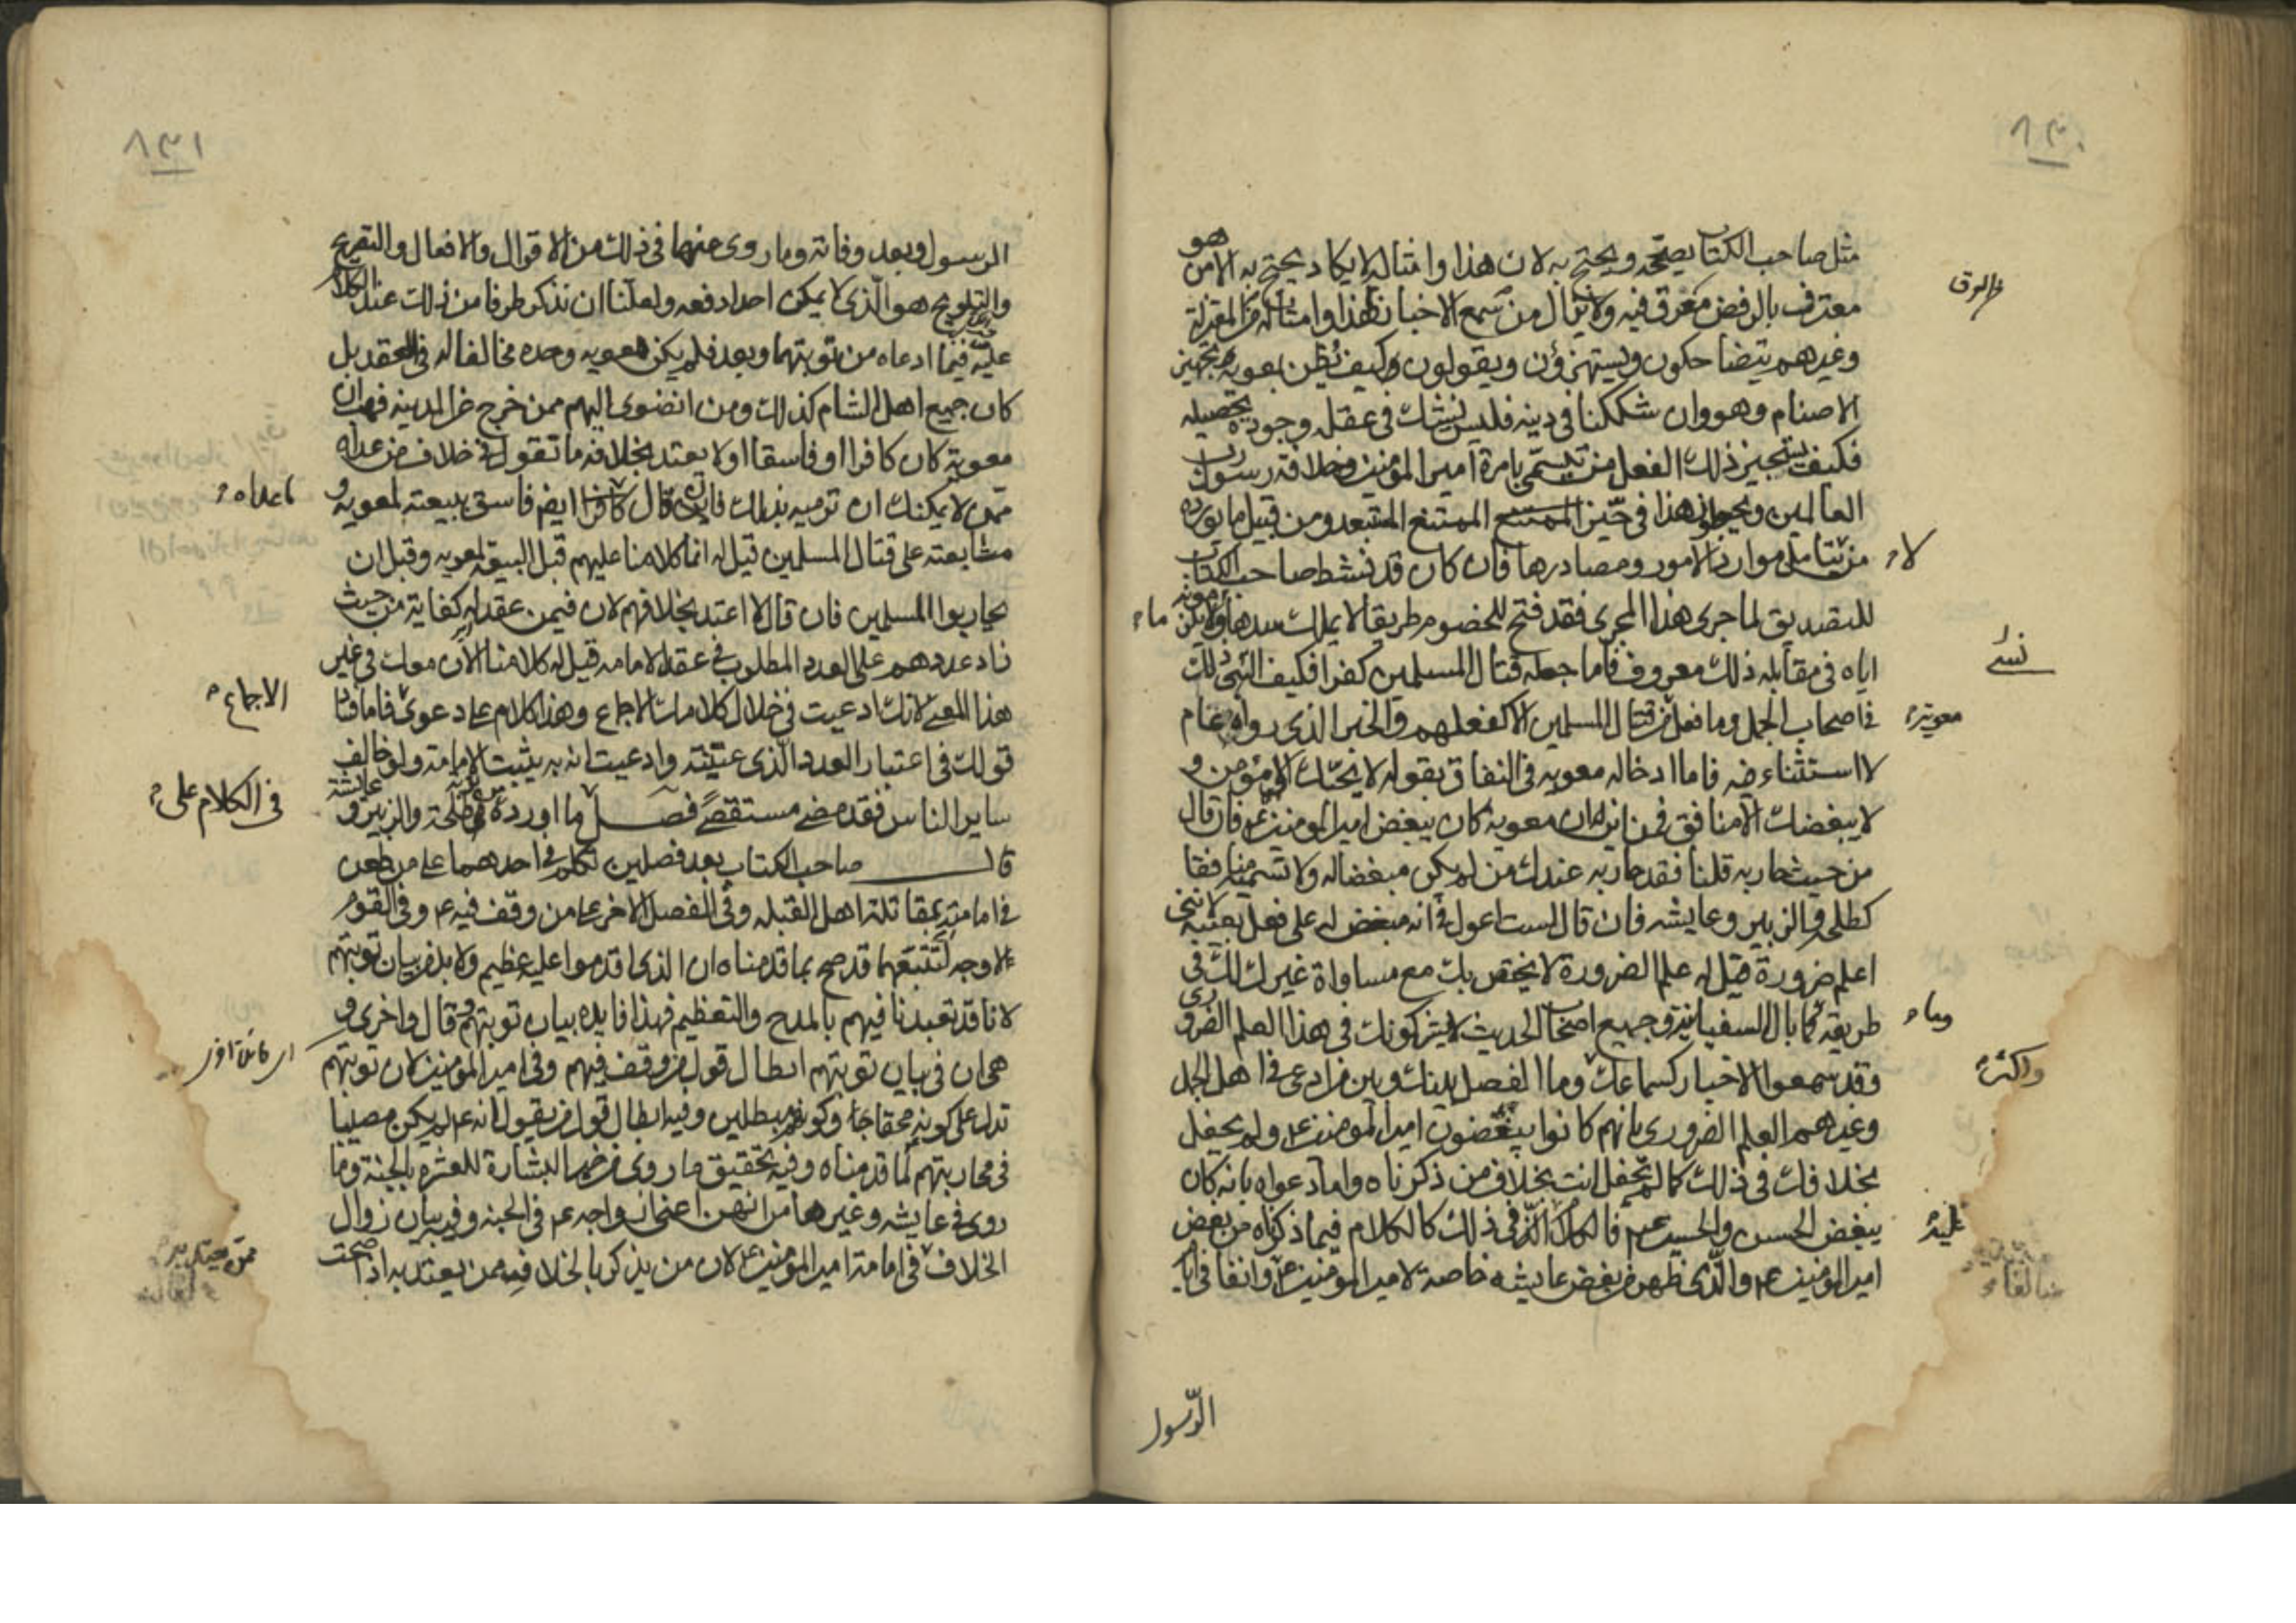 ٨٣٠
مثل صاحب الكتاب يصححه ويحتج به لان هذا وامثاله لا يكاد يحتج به الا من هو
معترف بالرفض مغرق فيه ولا يزال من سمع الاخبار بهذا وامثاله من المعتزلة
وغيرهم يتضاحكون ويستهزؤن ويقولون وكيف يظن بمعويه تجهيز
الاصنام وهو وان شككنا في دينه فليس نشك في عقله وجودة تحصيله
فكيف يستجيز ذلك الفعل من تسمى بامرة امير المؤمنين وخلافة رسول رب
العالمين وتجويز هذا في حيز الممتنع المستبعد ومن قبيل ما يورده
من يتامل موارد الامور ومصادرها فان كان قد نشط صاحب الكتاب
لا
للتصديق لما جرى هذا المجرى فقد فتح للخصوم طريقا لا يملك سدها
اياه في مقابله ذلك معروف فاما جعله قتال المسلمين كفرا فكيف
في اصحاب الجمل وما فعل من قتال المسلمين الا كفعلهم والخبر الذي رواه عام
معوية
لا استثناء فيه فاما ادخاله معويه في النفاق بقوله لا يحبك الا مؤمن و
لا يبغضك الا منافق فمن اين له ان معوية كان يبغض امير المومنين ع فان قال
من حيث حاربه قلنا فقد حاربه عندك من لم يكن مبغضا له ولا تسميه منافقا
كطلحة والزبير وعايشه فان قال لست اعول في انه مبغض له على فعل بعينه لانني
اعلم ضرورة قيل له علم الضرورة لا يختص بك مع مساواة غيرك لك في
طريقه فما بال السفيانية وجميع اصحاب الحديث لا يشركونك في هذا العلم الضروري
وقد سمعوا الاخبار كسماعك وما الفصل بينك وبين من ادعى في اهل الجمل
واكثر
وغيرهم العلم الضروري بانهم كانوا يبغضون امير المومنين ع ولم يحفل
بخلافك في ذلك كما لم تحفل انت بخلاف من ذكرناه واما دعواه بانه كان
يبغض الحسن والحسين ع فالكلام في ذلك كالكلام فيما ذكرناه من بغض
عليه
امير المومنين ع والذي ظهر من بغض عايشه خاصة لامير المومنين ع
الرسول
٨٣١
الرسول وبعد وفاته وما روى عنها في ذلك من الاقوال والافعال والتصريح
والتلويح هو الذي لا يمكن احدا دفعه ولعلنا ان نذكر طرفا من ذلك عند الكلام
عليه فيما ادعاه من توبتهما وبعد فلم يكن معويه وحده مخالفا له في العقد بل
كان جميع اهل الشام كذلك ومن انضوى اليهم ممن خرج عن المدينه فهب ان
معوية كان كافرا او فاسقا او لا يعتد بخلافه ما تقول في خلاف من عداه
ممن لا يمكنك ان ترميه بذلك فان قال كافرا ايضا فاسق ببيعته لمعويه و
مشايعته على قتال المسلمين قيل له انما كلامنا عليهم قبل البيعة لمعويه وقبل ان
يحاربوا المسلمين فان قال لا اعتد بخلافهم لان فيمن عقد له كفاية من حيث
زاد عددهم على العدد المطلوب في عقد الامامه قيل له كلامنا الان معك في غير
هذا المعنى لانك ادعيت في خلال كلامك الاجماع وهذا كلام على دعوى
الاجماع
قولك في اعتبار العدد الذي عينته وادعيت انه به يثبت الامامة ولو خالف
ساير الناس فقد مضى مستقصى فصل ما اورده طلحة والزبير و عايشة
في الكلام على
قال صاحب الكتاب بعد فصلين تكلم في احدهما على من طعن
في امامته بمقاتلة اهل القبله وفي الفصل الاخر على من وقف فيه ع وفي القوم
لا وجه لتتبعهما قد صح بما قدمناه ان الذي اقدموا عليه عظيم ولا بد من بيان توبتهم
لانا قد تعبدنا فيهم بالمدح والتعظيم فهذا فايده بيان توبتهم قال واخرى و
هي ان في بيان توبتهم ابطال قول من وقف فيهم وفي امير المؤمنين لان توبتهم
تدل على كونه محقا وكونهم مبطلين وفيه ابطال قول من يقول انه ع لم يكن مصيبا
في محاربتهم كما قدمناه وفيه تحقيق ما روى من خبر البشارة للعشرة بالجنة وما
روى في عايشه وغيرها من انهن ازواجه ع في الجنه وفيه بيان زوال
الخلاف في امامة امير المومنين ع لان من يذكر بالخلاف فيه ممن يعتد به اذا صحت